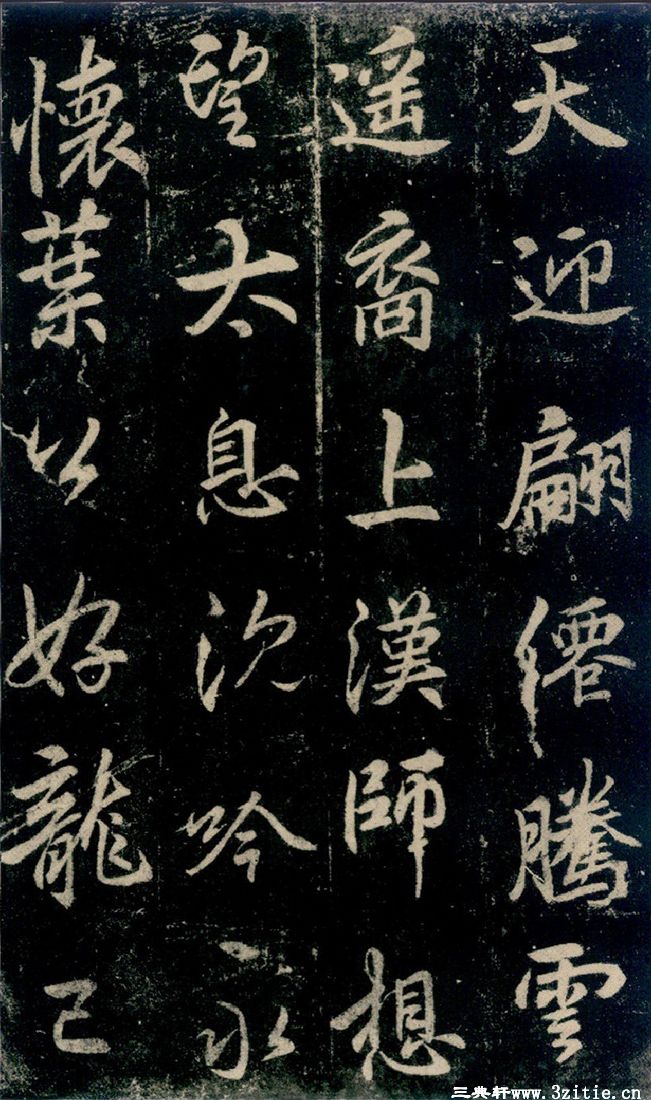 天迎翩僊騰雲
遥裔上漢師想
望太息沈吟永
懷葉公好龍已
三典軒www.3zitie.cn